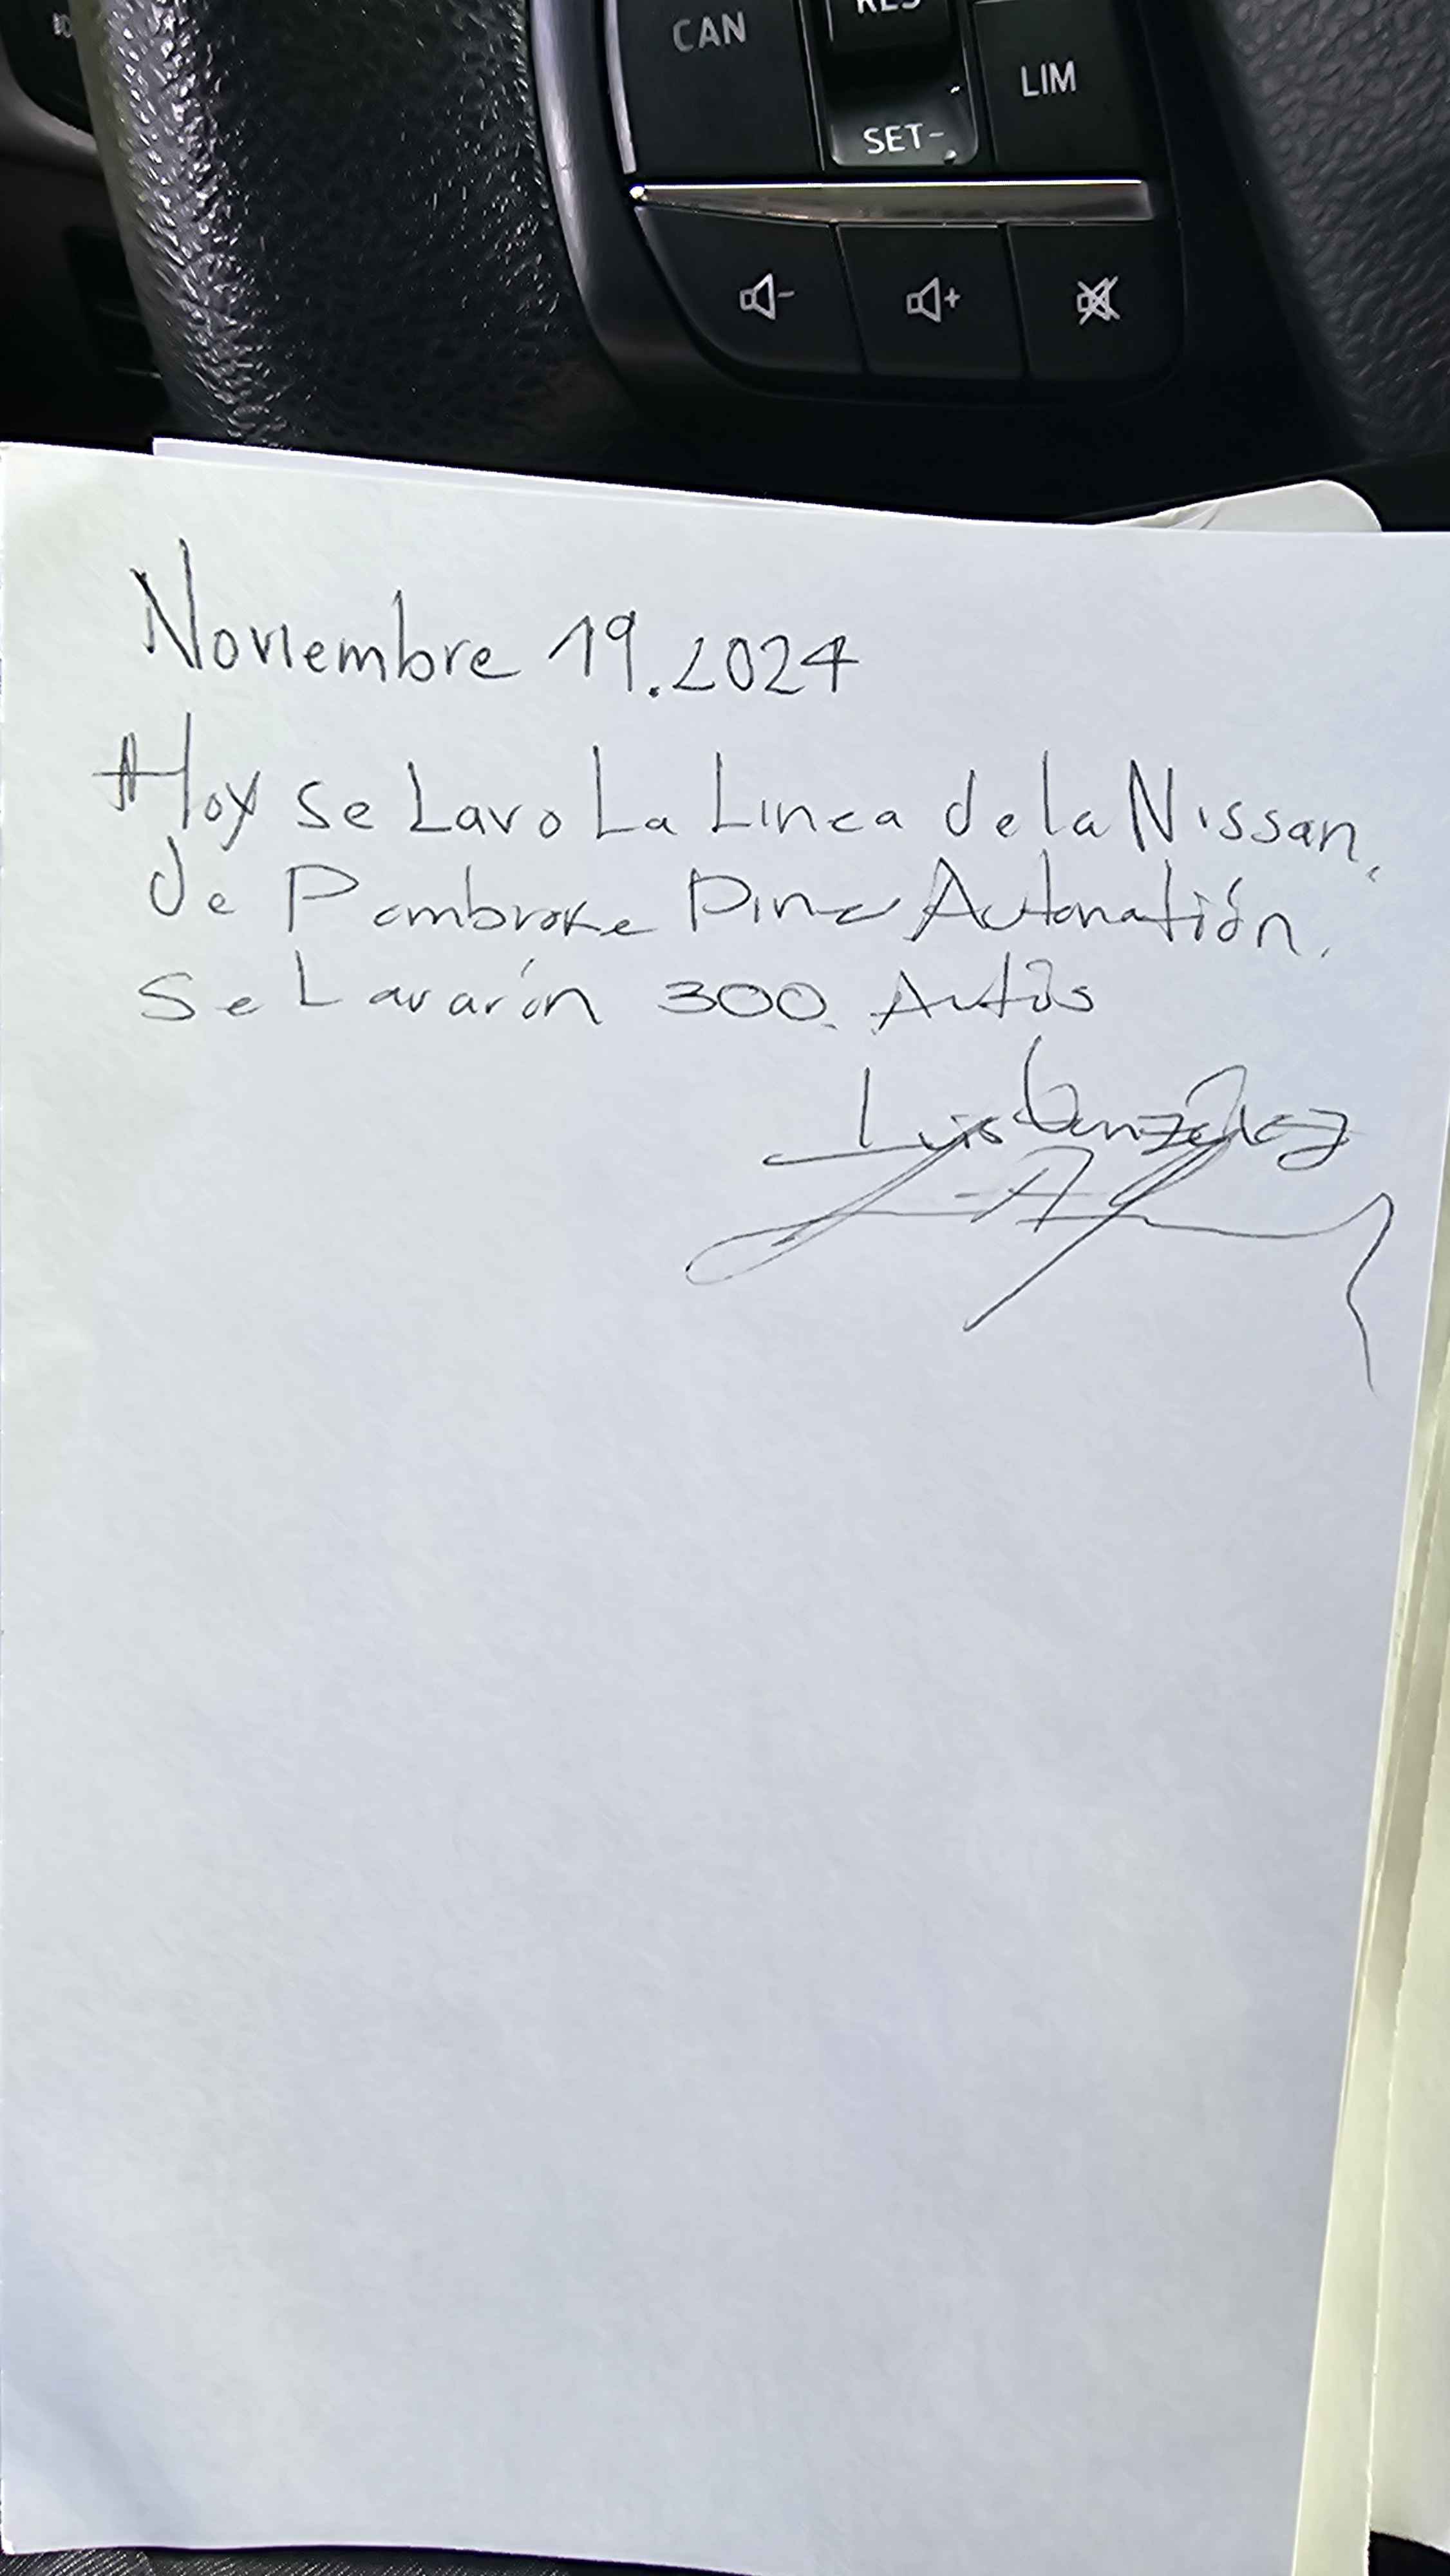 CAN
RES
SET-
LIM
Noviembre 19.2024
Hoy se Lavo La Linea de la Nissan.
de Pembroke Pine Autonatión.
Se Lavarón 300. Autós
Luis González